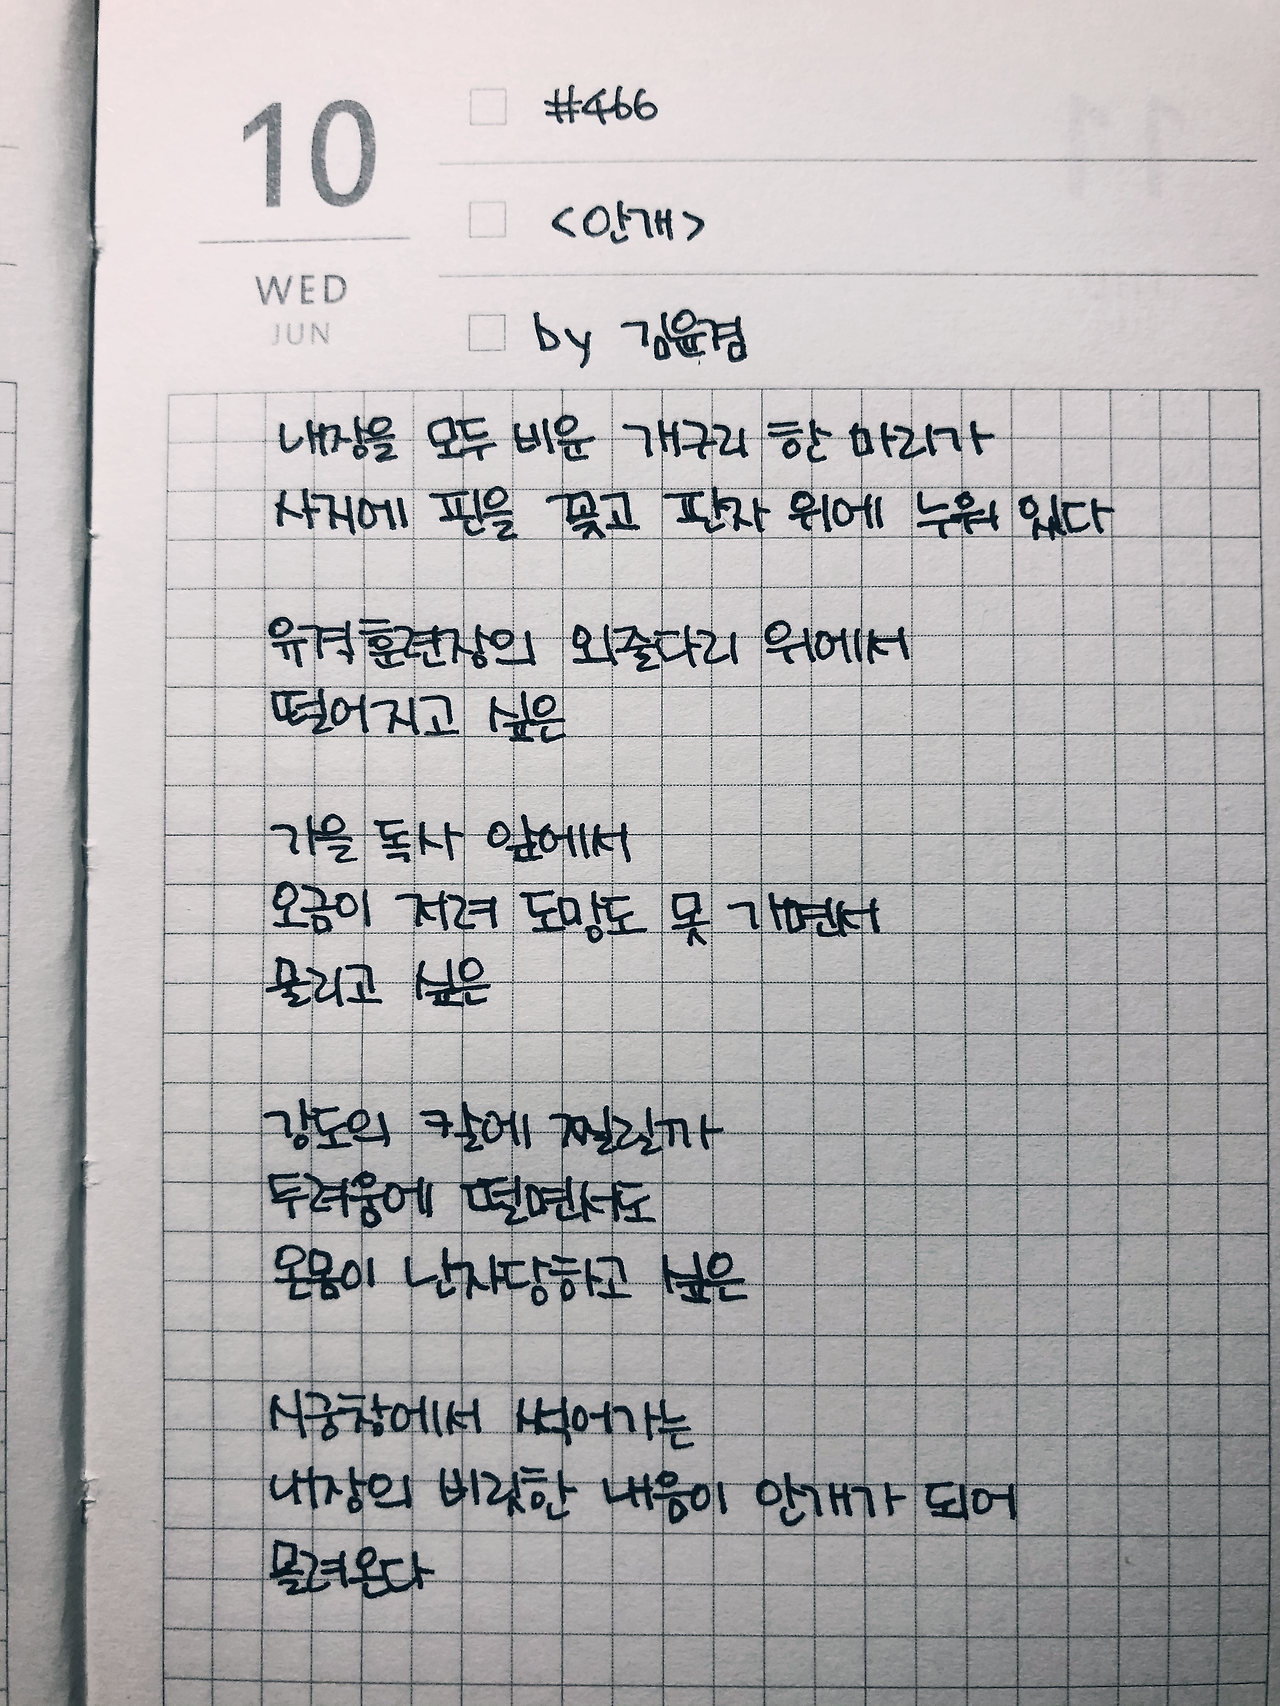 10
WED
JUN
#466
<안개>
by 김윤겸
내장을 모두 비운 개구리 한 마리가
사지에 핀을 꽂고 판자 위에 누워 있다
유격훈련장의 외줄다리 위에서
떨어지고 싶은
가을 독사 앞에서
오금이 저려 도망도 못 가면서
물리고 싶은
강도의 칼에 찔릴까
두려움에 떨면서도
온몸이 난자당하고 싶은
시궁창에서 썩어가는
내장의 비릿한 내음이 안개가 되어
몰려온다